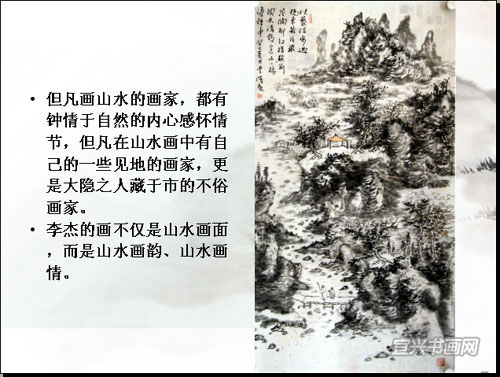 • 但凡画山水的画家，都有
钟情于自然的内心感怀情
节，但凡在山水画中有自
己的一些见地的画家，更
是大隐之人藏于市的不俗
画家。
• 李杰的画不仅是山水画面
，而是山水画韵、山水画
情。
宜兴书画网